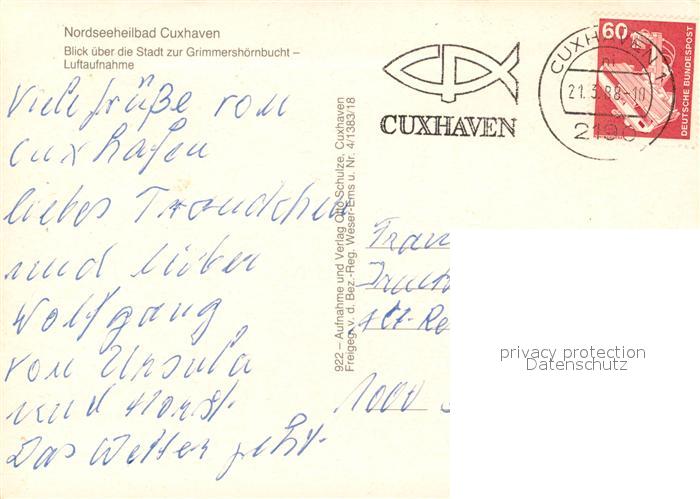 Nordseeheilbad Cuxhaven
Blick über die Stadt zur Grimmershörnbucht –
Luftaufnahme
Viele Grüße von
Cuxhafen
liebes Traudchen
und lieber
Wolfgang
von Ursula
und Horst.
Das Wetter geht.
922 – Aufnahme und Verlag Otto Schulze, Cuxhaven
Freigeg. v. d. Bez.-Reg. Weser-Ems u. Nr. 4/1383/18
CUXHAVEN
CUXHAVEN 1
21.3.88-10
2190
60
DEUTSCHE BUNDESPOST
Frau
Alt-Re
1000
privacy protection
Datenschutz